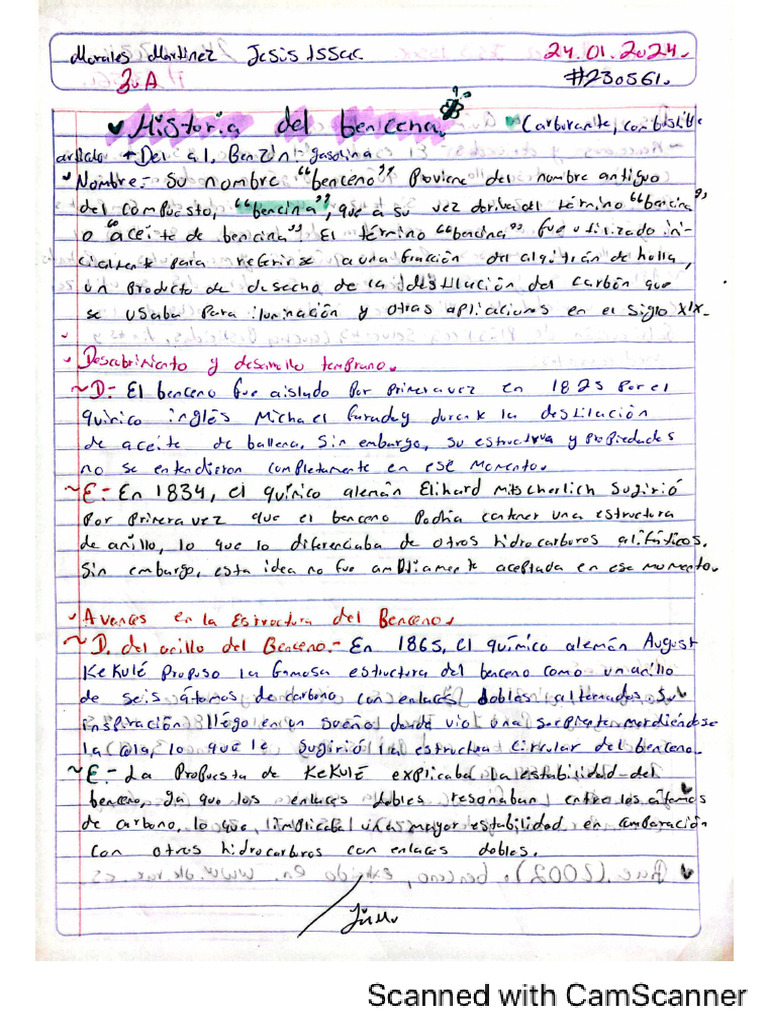 Morales Martinez Jesis Issac 24.01.2024.
3.A #230561.
Historia del bencena. Carburante, combustible
articulo + Del al, Benzin: gasolina
Nombre.- Su nombre "benceno" Proviene del nombre antiguo
del compuesto, "bencina", que a su vez deriva del término "bencina"
o "aceite de bencina". El término "bencina" fue utilizado ini-
cialmente para referirse a una fracción del alquitrán de hulla,
un producto de desecho de la destilación del carbón que
se usaba para iluminación y otras aplicaciones en el siglo XIX.
Descubrimiento y desarrollo temprano.
~D.- El benceno fue aislado por primera vez en 1825 por el
químico inglés Michael Faraday durante la destilación
de aceite de ballena. Sin embargo, su estructura y propiedades
no se entendieron completamente en ese momento.
~E.- En 1834, el químico alemán Elihard Mitscherlich sugirió
por primera vez que el benceno podría contener una estructura
de anillo, lo que lo diferenciaba de otros hidrocarburos alifáticos.
Sin embargo, esta idea no fue ampliamente aceptada en ese momento.
Avances en la Estructura del Benceno.
~D. del anillo del Benceno.- En 1865, el químico alemán August
Kekulé propuso la famosa estructura del benceno como un anillo
de seis átomos de carbono con enlaces dobles alternados. Su
inspiración llégo en un sueño donde vio una serpiente mordiéndose
la cola, lo que le sugirió la estructura circular del benceno.
~E.- La Propuesta de Kekulé explicaba la estabilidad del
benceno, ya que los enlaces dobles resonaban entre los átomos
de carbono, lo que implicaba una mayor estabilidad en comparación
con otros hidrocarburos con enlaces dobles.
Scanned with CamScanner